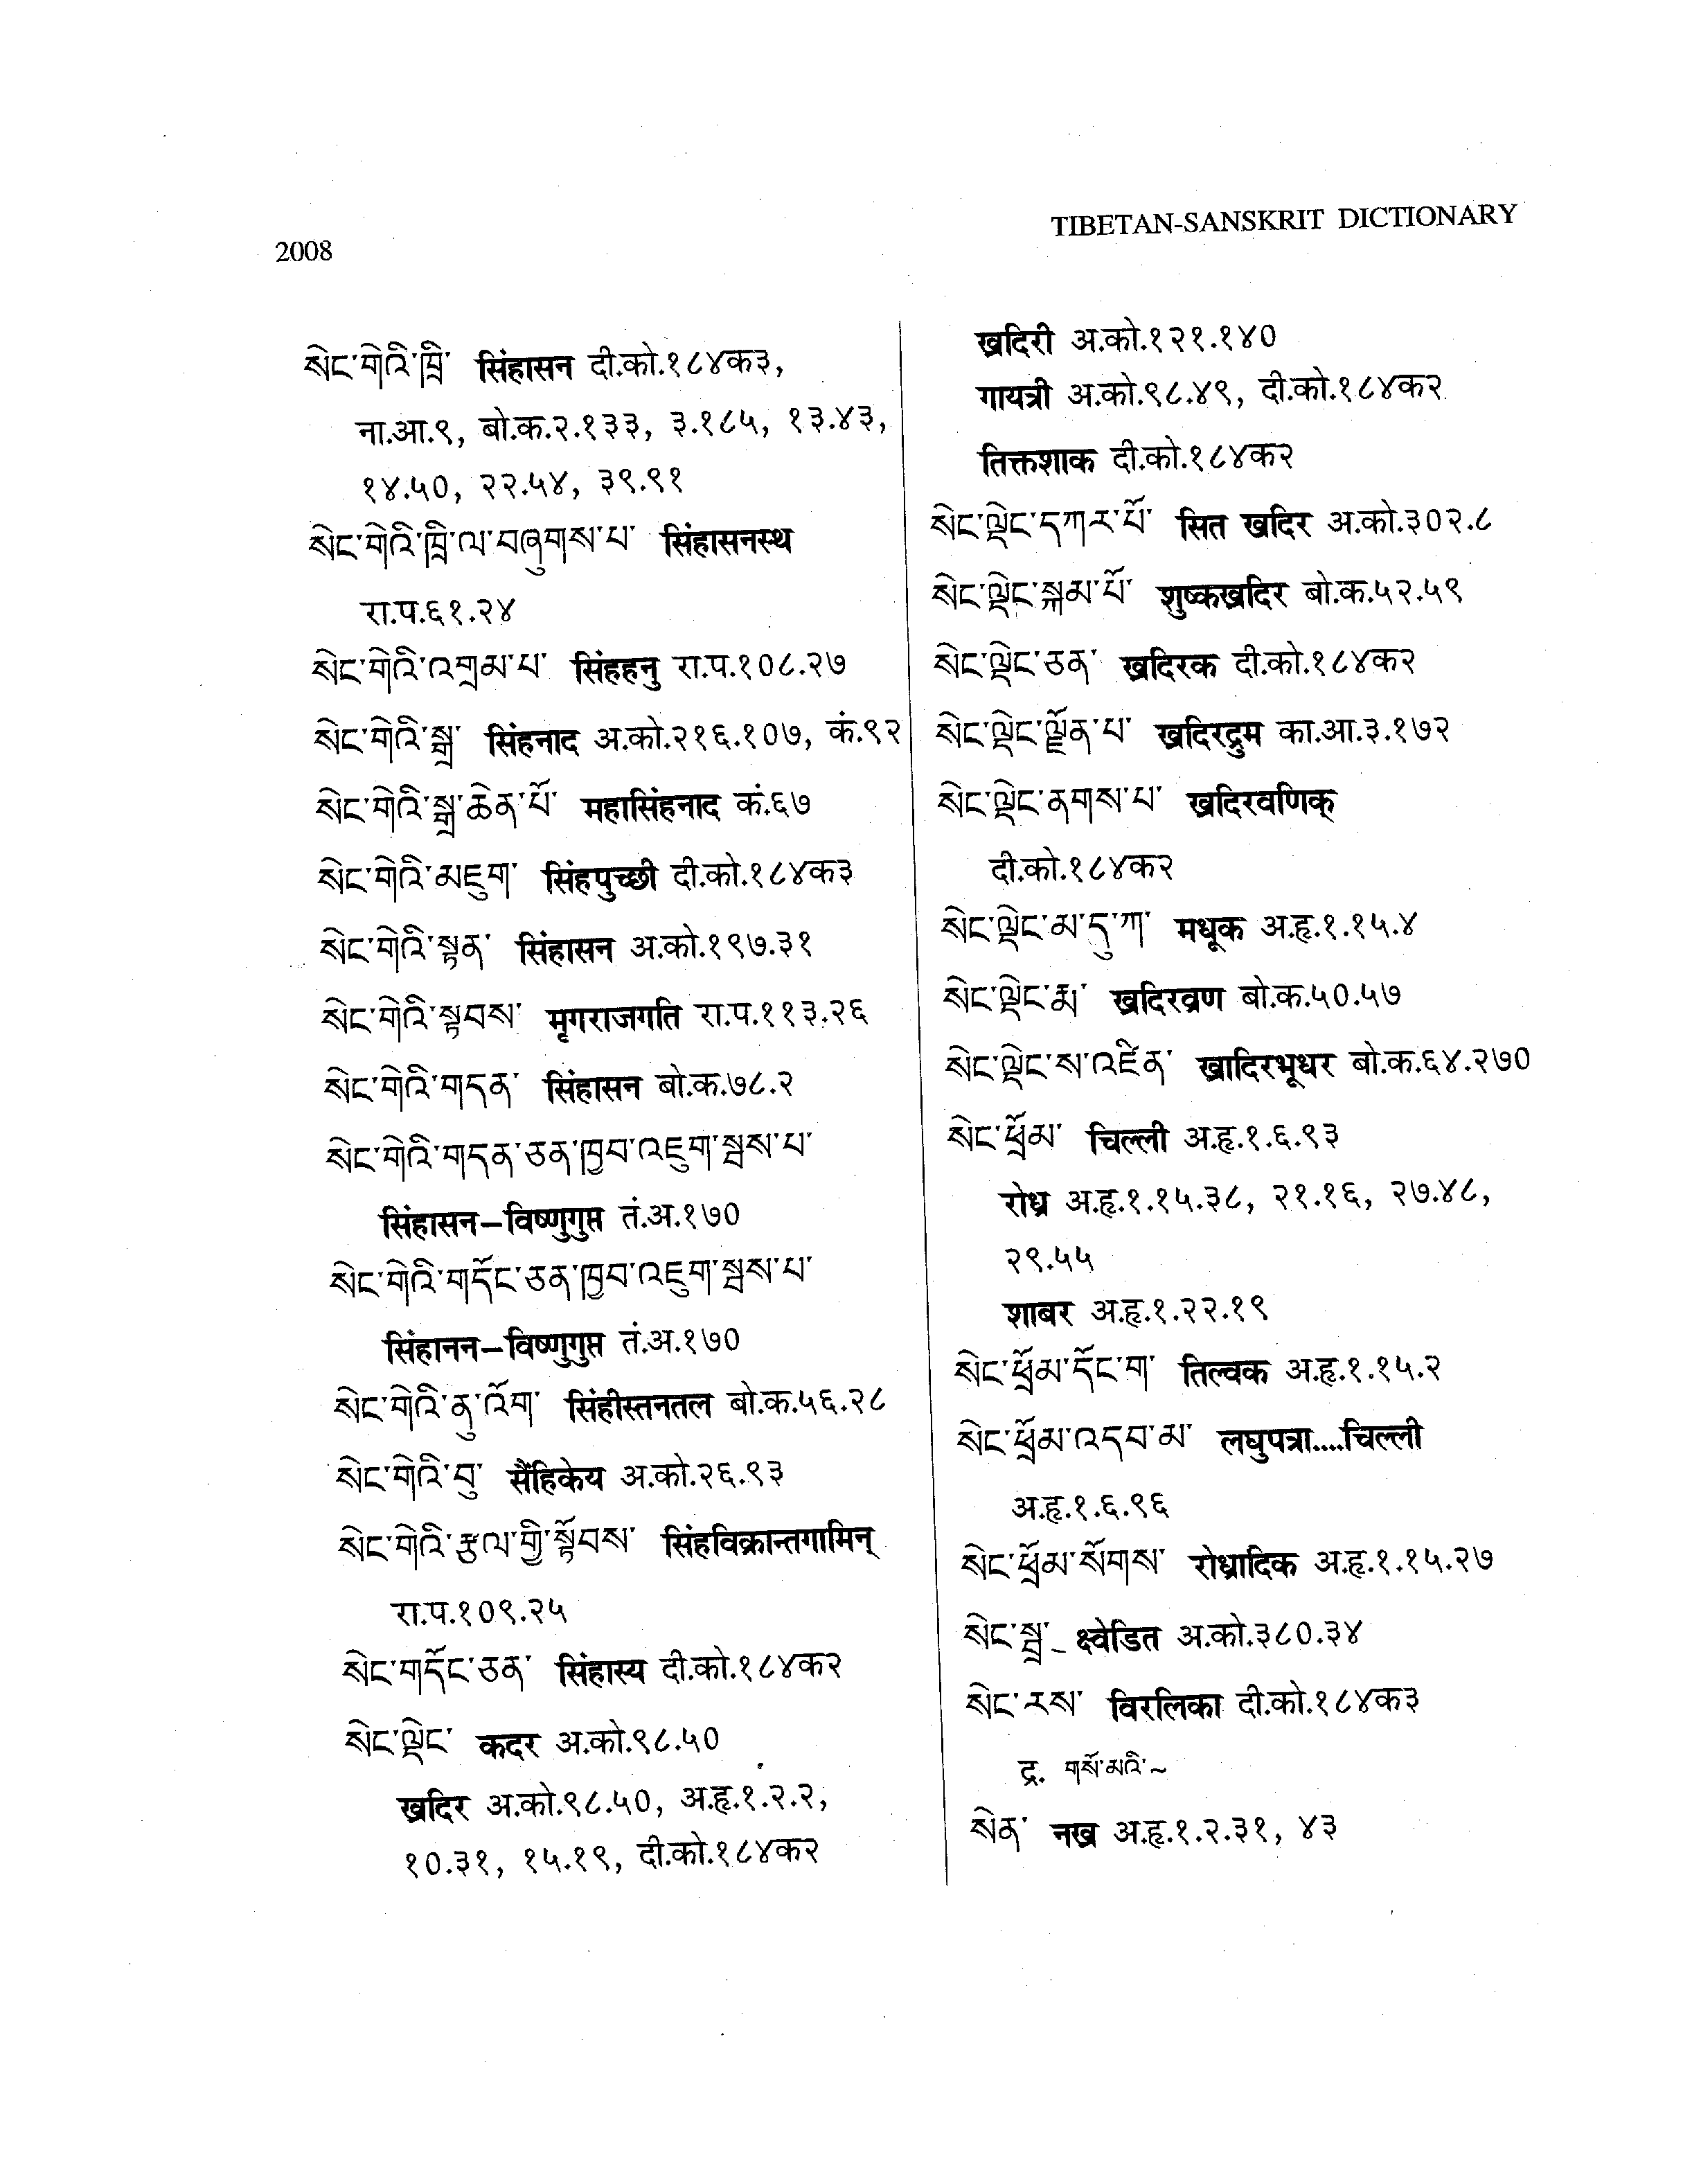 2008
TIBETAN-SANSKRIT DICTIONARY
སེང་གེའི་ཁྲི་ सिंहासन दी.को.१८४क३,
ना.आ.९, बो.क.२.१३३, ३.१८५, १३.४३,
१४.५०, २२.५४, ३९.९१
སེང་གེའི་ཁྲི་ལ་བཞུགས་པ་ सिंहासनस्थ
रा.प.६१.२४
སེང་གེའི་འགྲམ་པ་ सिंहहनु रा.प.१०८.२७
སེང་གེའི་སྒྲ་ सिंहनाद अ.को.२१६.१०७, कं.९२
སེང་གེའི་སྒྲ་ཆེན་པོ་ महासिंहनाद कं.६७
སེང་གེའི་མཇུག་ सिंहपुच्छी दी.को.१८४क३
སེང་གེའི་སྟན་ सिंहासन अ.को.१९७.३१
སེང་གེའི་སྟབས་ मृगराजगति रा.प.११३.२६
སེང་གེའི་གདན་ सिंहासन बो.क.७८.२
སེང་གེའི་གདན་ཅན་ཁྱབ་འཇུག་སྦས་པ་
सिंहासन–विष्णुगुप्त तं.अ.१७०
སེང་གེའི་གདོང་ཅན་ཁྱབ་འཇུག་སྦས་པ་
सिंहानन–विष्णुगुप्त तं.अ.१७०
སེང་གེའི་ནུ་འོག་ सिंहीस्तनतल बो.क.५६.२८
སེང་གེའི་བུ་ सैंहिकेय अ.को.२६.९३
སེང་གེའི་རྩལ་གྱི་སྟོབས་ सिंहविक्रान्तगामिन्
रा.प.१०९.२५
སེང་གདོང་ཅན་ सिंहास्य दी.को.१८४क२
སེང་ལྡེང་ कदर अ.को.९८.५०
खदिर अ.को.९८.५०, अ.हृ.१.२.२,
१०.३१, १५.१९, दी.को.१८४क२
खदिरी अ.को.१२१.१४०
गायत्री अ.को.९८.४९, दी.को.१८४क२
तिक्तशाक दी.को.१८४क२
སེང་ལྡེང་དཀར་པོ་ सित खदिर अ.को.३०२.८
སེང་ལྡེང་སྐམ་པོ་ शुष्कखदिर बो.क.५२.५९
སེང་ལྡེང་ཅན་ खदिरक दी.को.१८४क२
སེང་ལྡེང་ལྗོན་པ་ खदिरद्रुम का.आ.३.१७२
སེང་ལྡེང་ནགས་པ་ खदिरवणिक्
दी.को.१८४क२
སེང་ལྡེང་མ་དུ་ཀ་ मधूक अ.हृ.१.१५.४
སེང་ལྡེང་རྨ་ खदिरव्रण बो.क.५०.५७
སེང་ལྡེང་ས་འཛིན་ खादिरभूधर बो.क.६४.२७०
སེང་ཕྲོམ་ चिल्ली अ.हृ.१.६.९३
रोध्र अ.हृ.१.१५.३८, २१.१६, २७.४८,
२९.५५
शाबर अ.हृ.१.२२.१९
སེང་ཕྲོམ་དོང་ག་ तिल्वक अ.हृ.१.१५.२
སེང་ཕྲོམ་འདབ་མ་ लघुपत्रा....चिल्ली
अ.हृ.१.६.९६
སེང་ཕྲོམ་སོགས་ रोध्रादिक अ.हृ.१.१५.२७
སེང་སྒྲ་ क्ष्वेडित अ.को.३८०.३४
སེང་རས་ विरलिका दी.को.१८४क३
द्र. གསོ་མའི་~
སེན་ नख अ.हृ.१.२.३१, ४३